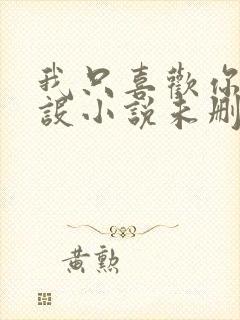 我只喜歡你
設小說未刪
黃勲